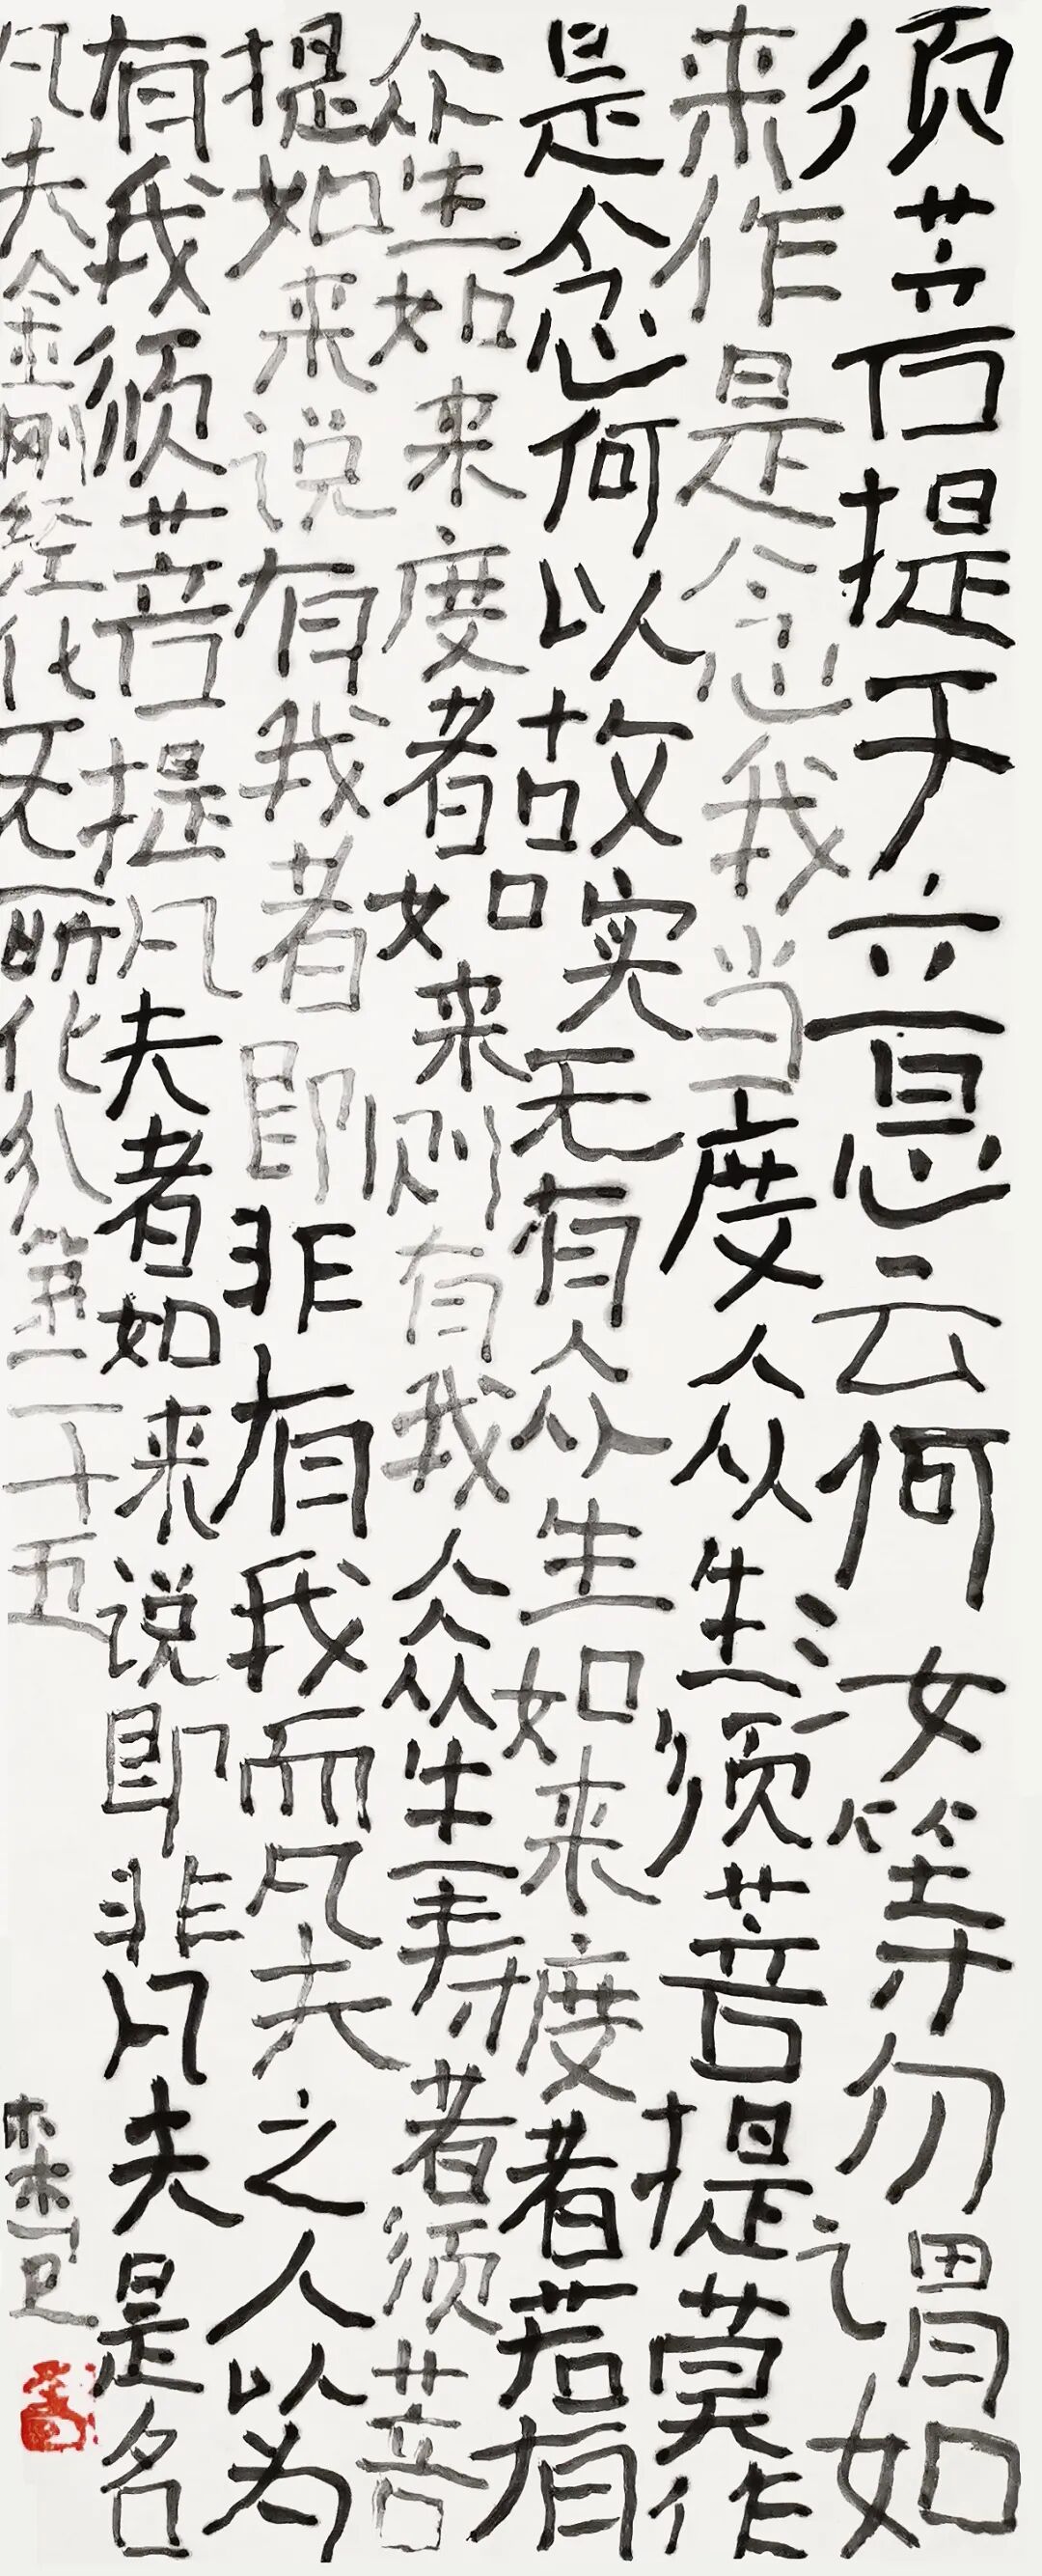 须菩提于意云何汝等勿谓如
来作是念我当度众生须菩提莫作
是念何以故实无有众生如来度者若有
众生如来度者如来则有我人众生寿者须菩
提如来说有我者即非有我而凡夫之人以为
有我须菩提凡夫者如来说即非凡夫是名
凡夫金刚经化无所化分第二十五